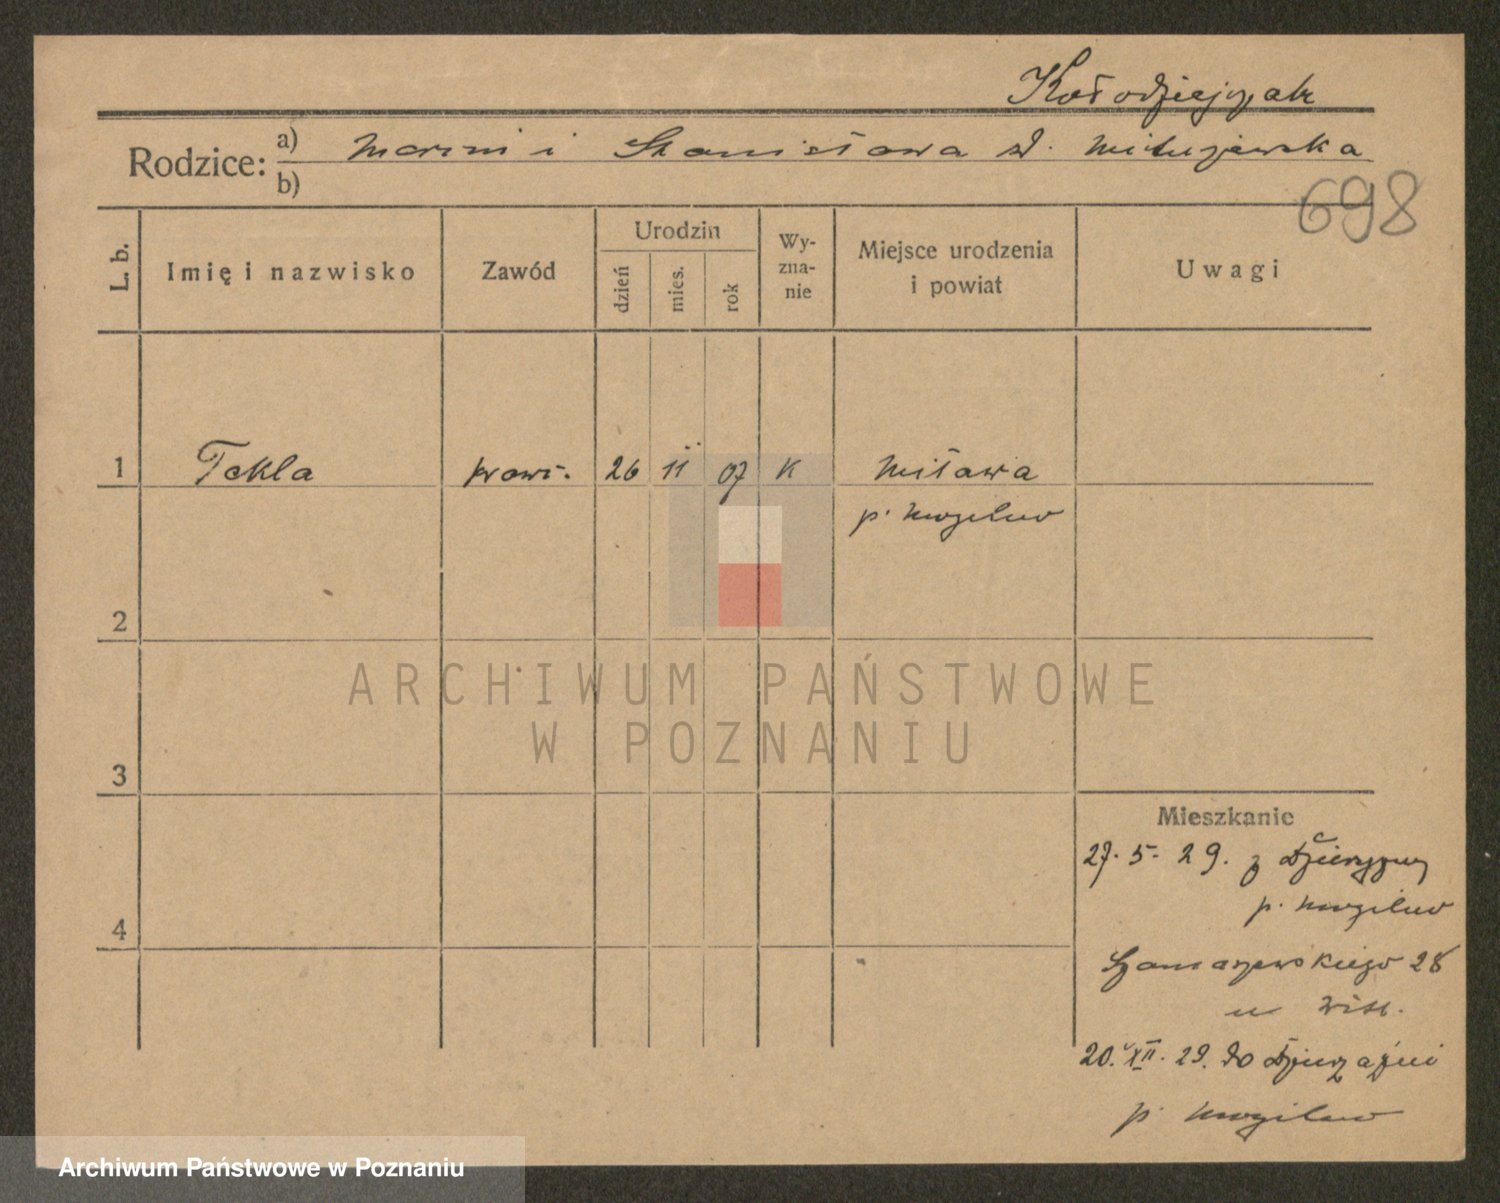 Kołodziejczak
Rodzice: a) Marcin i Stanisława d.
b)
698
L. b.
Imię i nazwisko
Zawód
Urodzin
dzień
mies.
rok
Wy-
zna-
nie
Miejsce urodzenia
i powiat
Uwagi
1 Tekla kraw. 26 11 07 K Miława
p. Mogilno
2
3
4
ARCHIWUM PAŃSTWOWE
W POZNANIU
Mieszkanie
27. 5. 29. z
p. Mogilno
Szamarzewskiego 28
u
20. XII. 29. do Dzierzążni
p. Mogilno
Archiwum Państwowe w Poznaniu